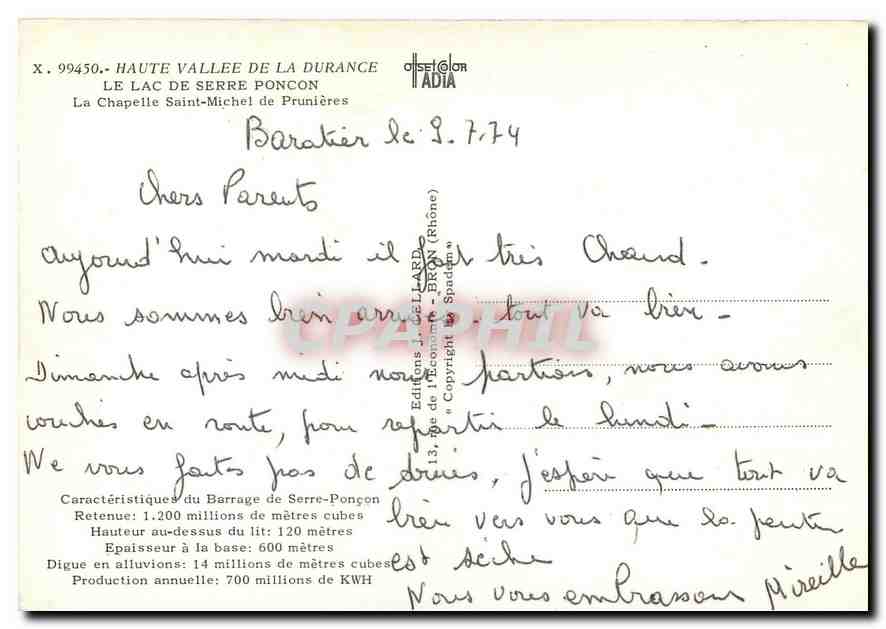 X. 99450.- HAUTE VALLEE DE LA DURANCE
LE LAC DE SERRE PONCON
La Chapelle Saint-Michel de Prunières
OFFSETCOLOR
ADIA
Baratier le 9.7.74
Chers Parents
aujourd'hui mardi il fait très Chaud.
Nous sommes bien arrivés. tout va bien -
Dimanche après midi nous partions, nous avons
couchés en route, pour repartir le lundi -
Ne vous faites pas de , j'espère que tout va
bien vers vous que la
est sèche
Nous vous embrassons Mireille
Editions J. CELLARD
13, rue de l'Economie - BRON (Rhône)
« Copyright by Spadem »
CPAPHIL
Caractéristiques du Barrage de Serre-Ponçon
Retenue: 1.200 millions de mètres cubes
Hauteur au-dessus du lit: 120 mètres
Epaisseur à la base: 600 mètres
Digue en alluvions: 14 millions de mètres cubes
Production annuelle: 700 millions de KWH